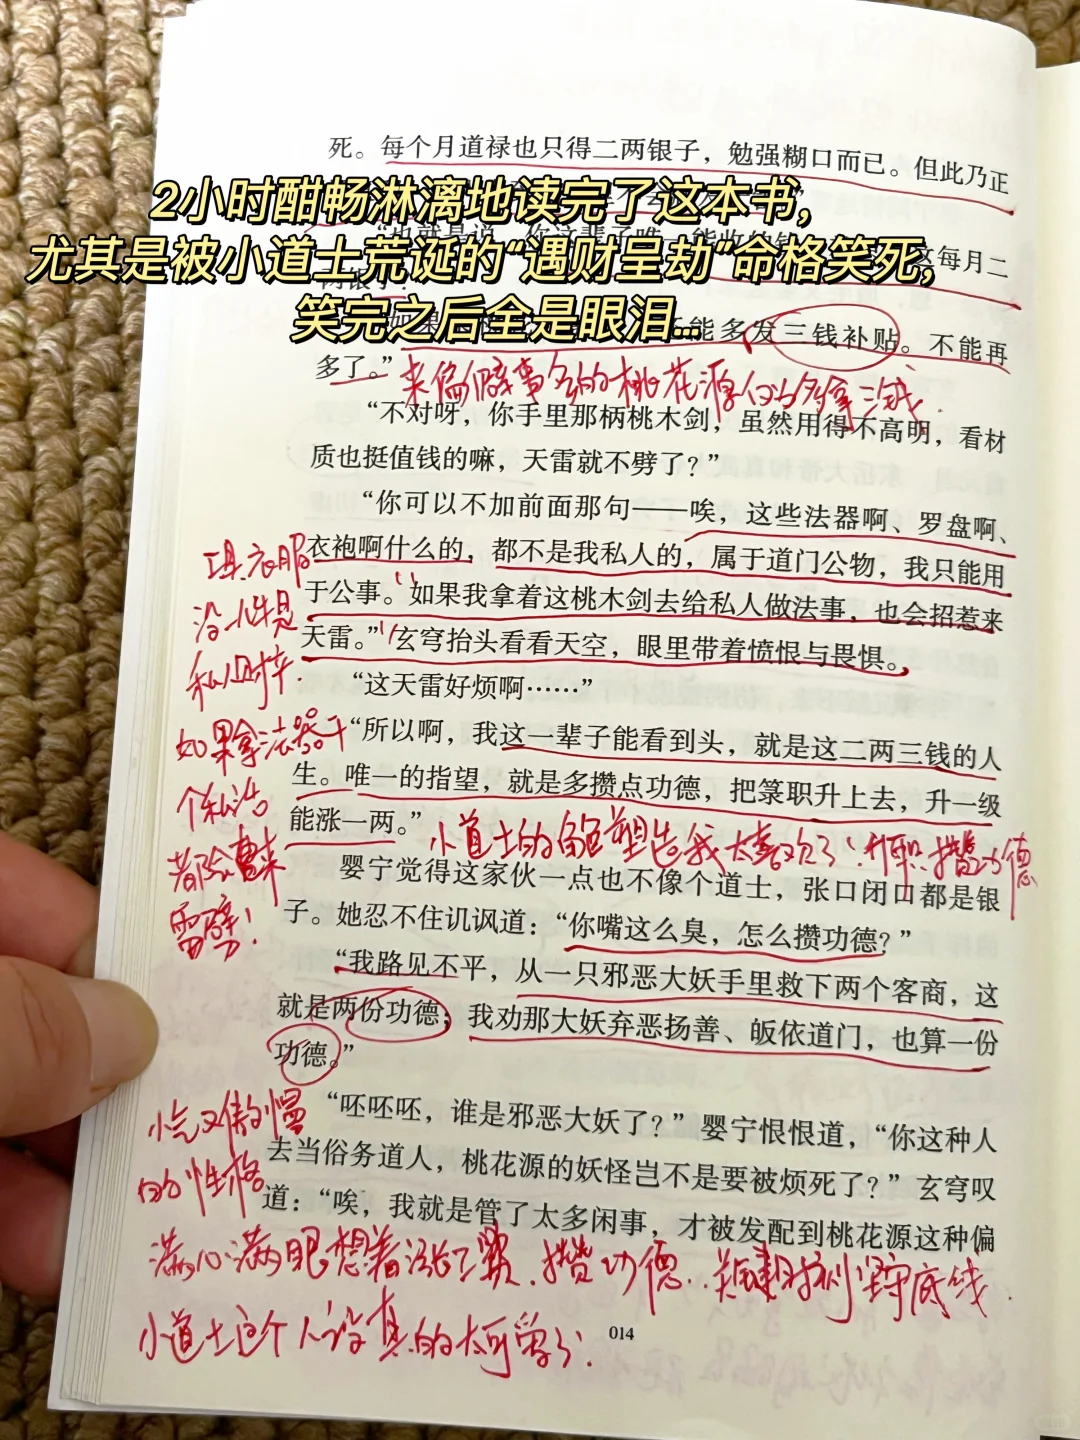 死。每个月道禄也只得二两银子，勉强糊口而已。但此乃正
2小时酣畅淋漓地读完了这本书，
尤其是被小道士荒诞的“遇财呈劫”命格笑死，
笑完之后全是眼泪...
这每月二
能多发三钱补贴。不能再
多了。”
来偏僻事多的桃花源仅多拿三钱
“不对呀，你手里那柄桃木剑，虽然用得不高明，看材
质也挺值钱的嘛，天雷就不劈了？”
“你可以不加前面那句——唉，这些法器啊、罗盘啊、
衣袍啊什么的，都不是我私人的，属于道门公物，我只能用
于公事。如果我拿着这桃木剑去给私人做法事，也会招惹来
天雷。”玄穹抬头看看天空，眼里带着愤恨与畏惧。
“这天雷好烦啊……”
“所以啊，我这一辈子能看到头，就是这二两三钱的人
生。唯一的指望，就是多攒点功德，把箓职升上去，升一级
能涨一两。”
工具、衣服
没一件是
私人财产.
如果拿法器干
个私活
都会惠来
雷劈！
小道士的角色塑造我太喜欢了！升职、攒功德
婴宁觉得这家伙一点也不像个道士，张口闭口都是银
子。她忍不住讥讽道：“你嘴这么臭，怎么攒功德？”
“我路见不平，从一只邪恶大妖手里救下两个客商，这
就是两份功德；我劝那大妖弃恶扬善、皈依道门，也算一份
功德。”
“呸呸呸，谁是邪恶大妖了？”婴宁恨恨道，“你这种人
去当俗务道人，桃花源的妖怪岂不是要被烦死了？”玄穹叹
道：“唉，我就是管了太多闲事，才被发配到桃花源这种偏
又傲慢
的性格
满心满眼想着涨工资、攒功德..关键时刻坚守底线.
小道士这个人设真的太可爱了.
014